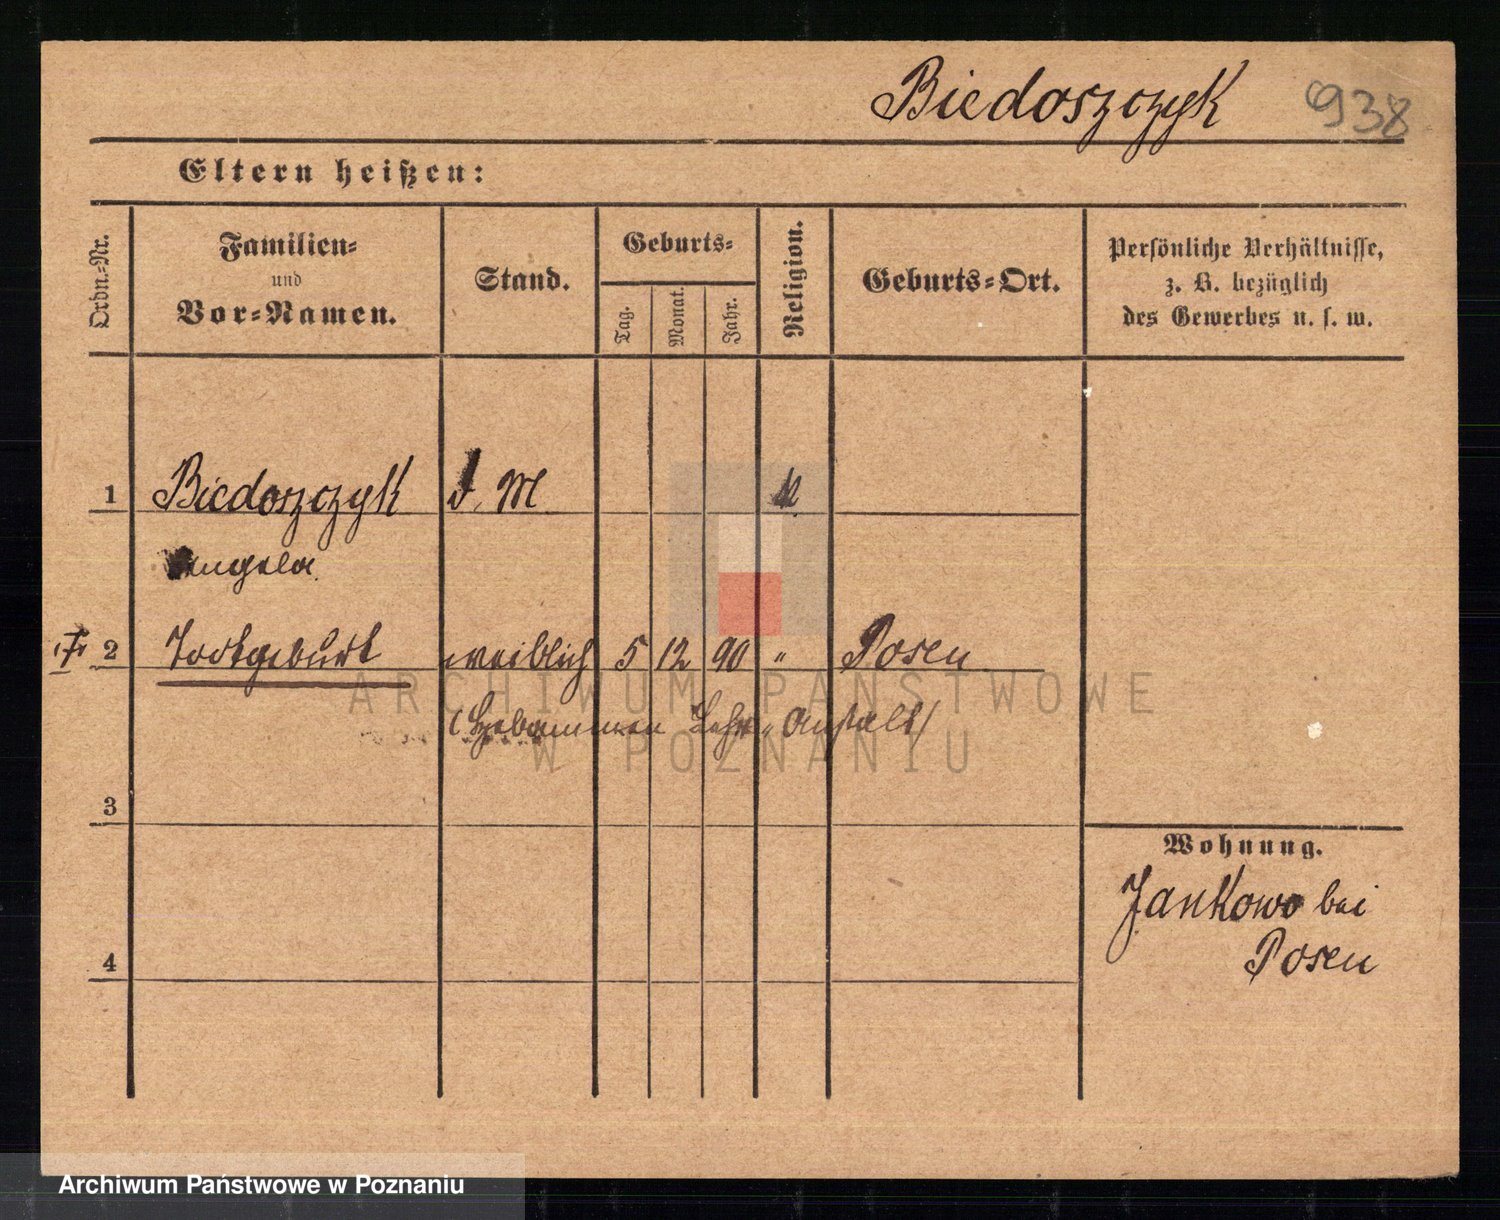 Biedoszczyk 938
Eltern heißen:
Ordn.-Nr.
Familien-
und
Vor-Namen.
Stand.
Geburts-
Tag.
Monat.
Jahr.
Religion.
Geburts-Ort.
Persönliche Verhältnisse,
z. B. bezüglich
des Gewerbes u. s. w.
1 Biedoszczyk d. M. k.
Angela
2 Todtgeburt weiblich 5 12 90 " Posen
(Hebammen Lehr-Anstalt)
3
4
Wohnung.
Jankowo bei
Posen
ARCHIWUM PAŃSTWOWE
W POZNANIU
Archiwum Państwowe w Poznaniu